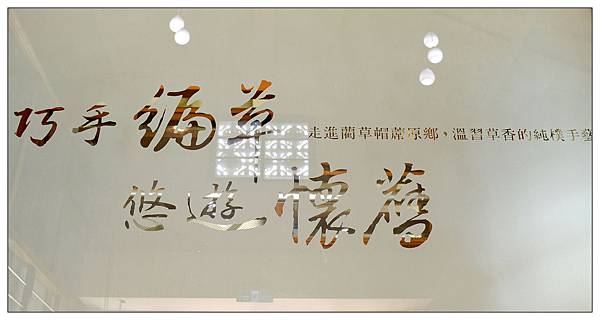 巧手編草
走進藺草帽蓆原鄉，溫習草香的純樸手藝
悠遊懷舊